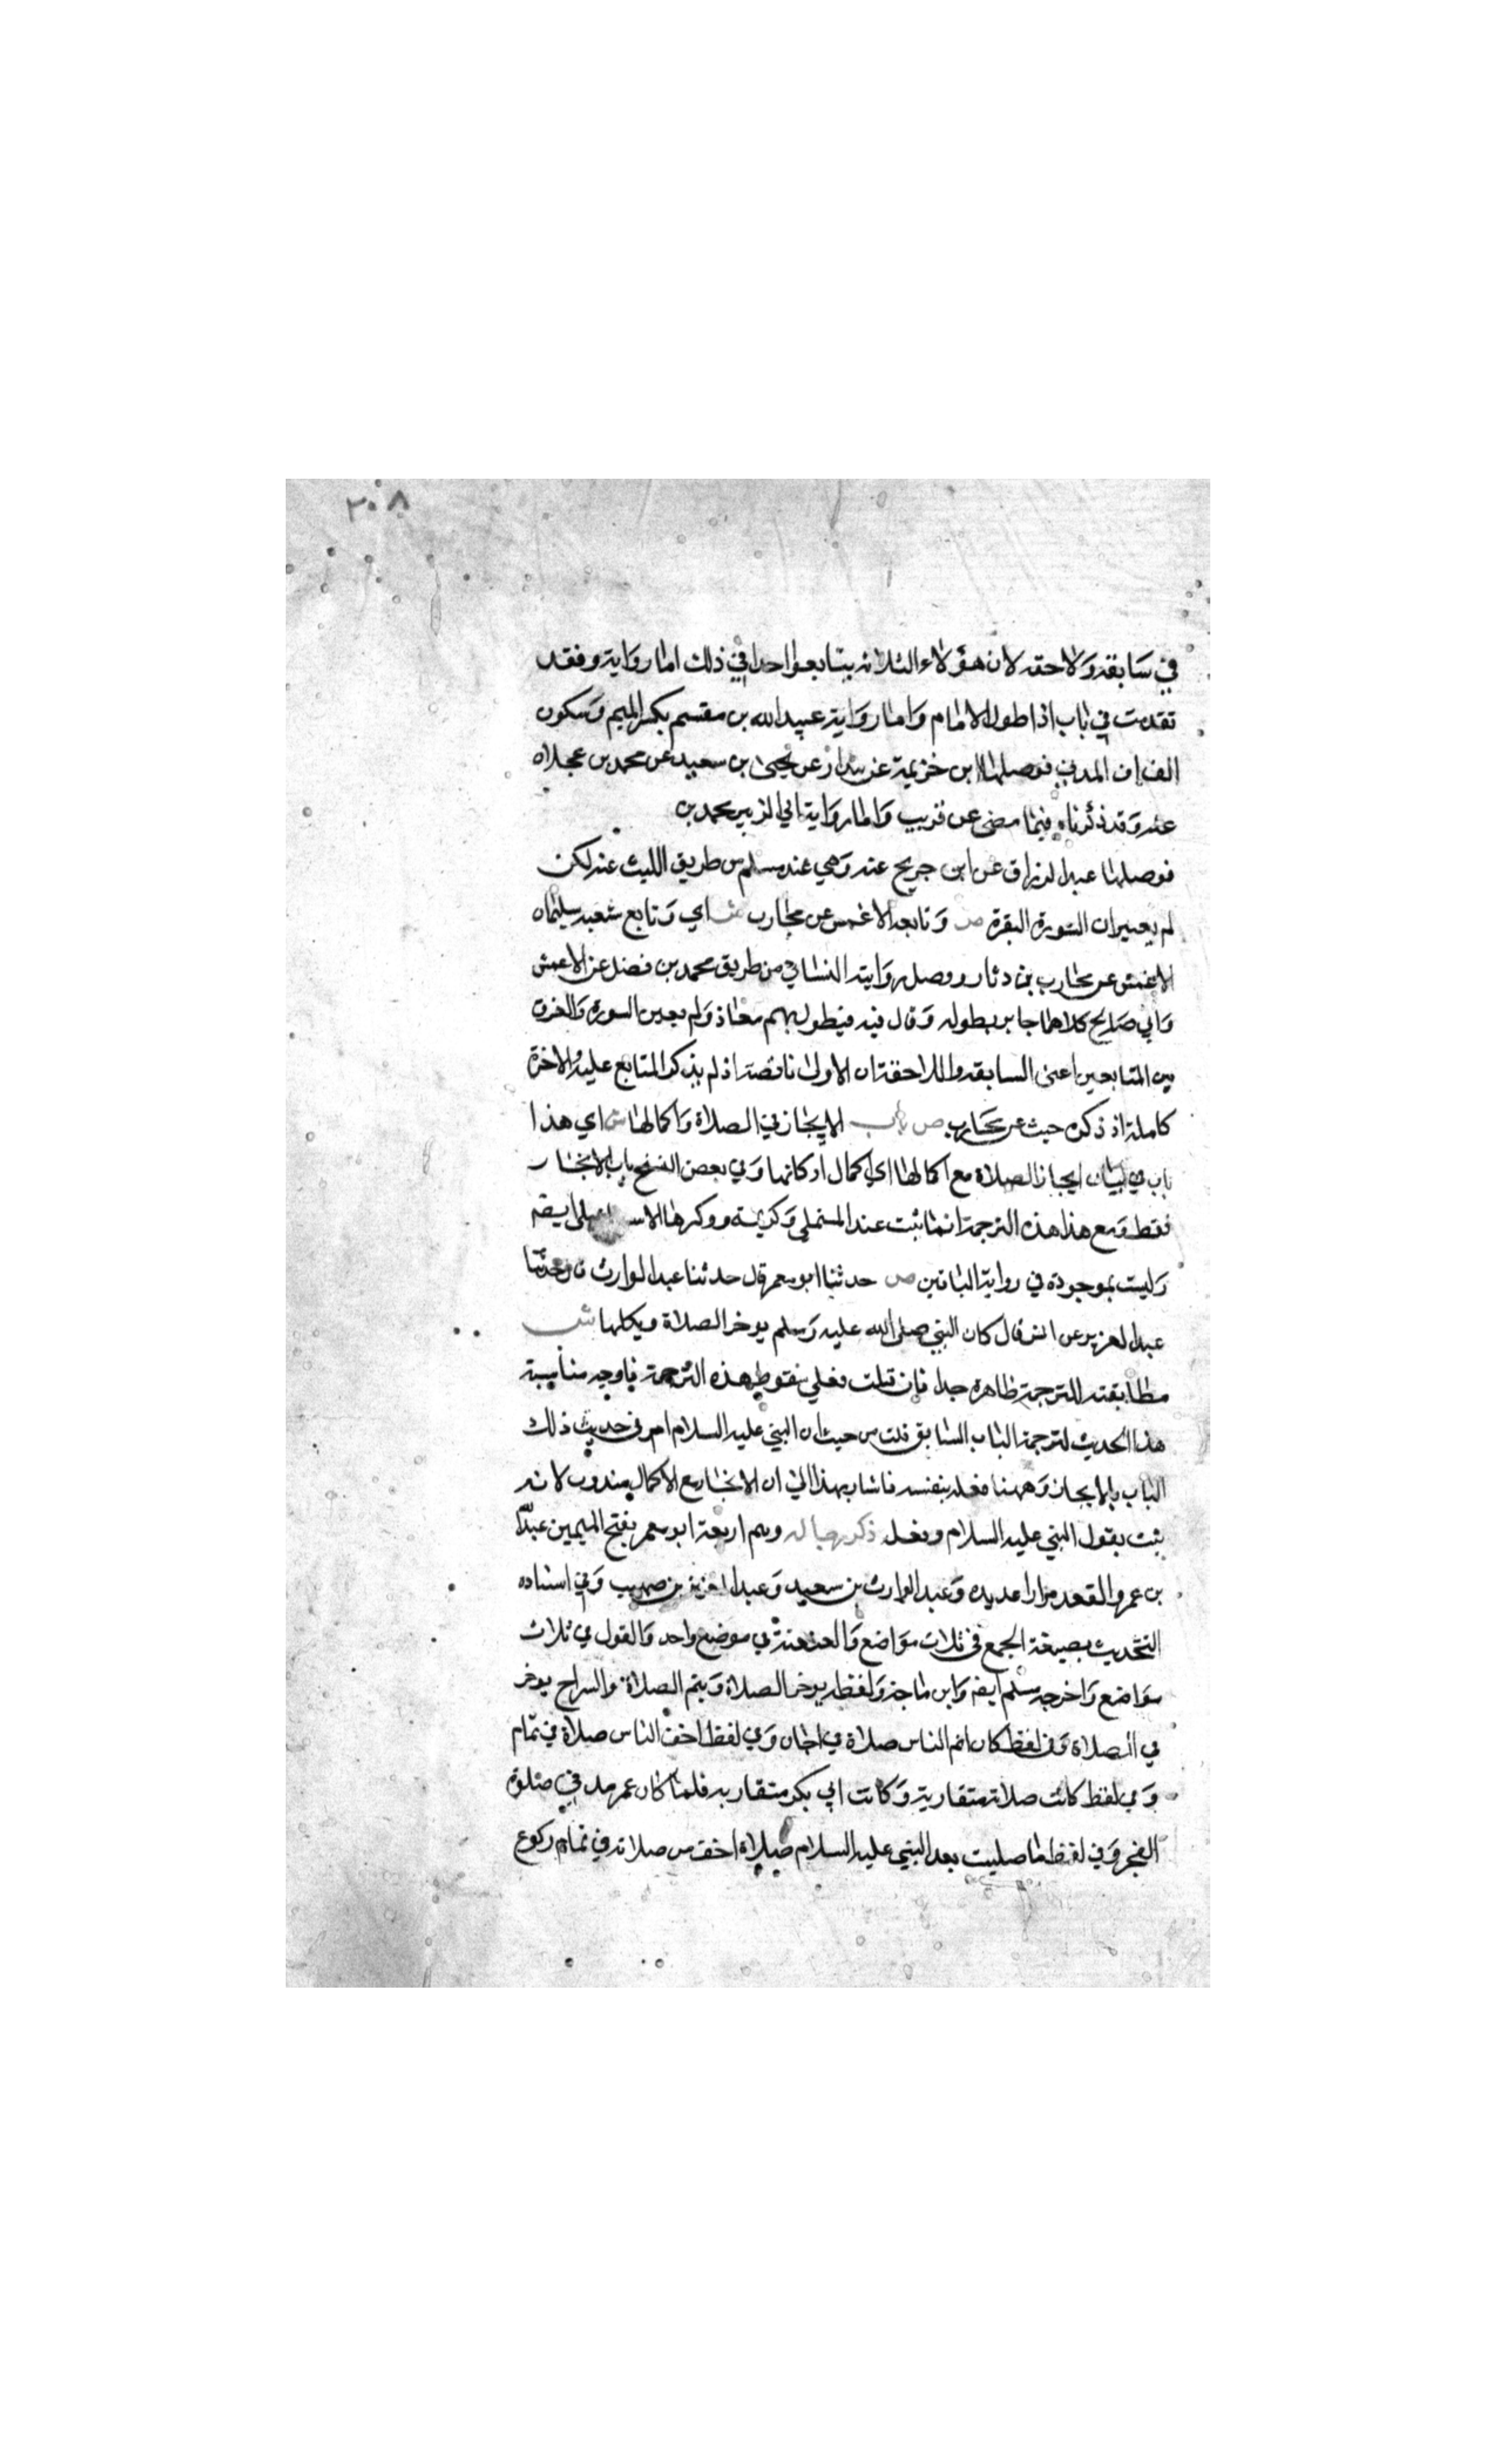 ٣٠٨
في سابقه ولاحقه لان هؤلاء الثلاثه يتابعوا احدا في ذلك اما رواية وفقد
تقدمت في باب اذا طول الامام واما رواية عبيد الله بن مقسم بكسر الميم وسكون
القاف المدني فوصلها ابن خزيمة عن بندار عن يحيى بن سعيد عن محمد بن عجلان
عنه وقد ذكرناه فيما مضى عن قريب واما رواية ابي الزبير محمد بن
فوصلها عبد الرزاق عن ابن جريج عنه وهي عند مسلم من طريق الليث عنه لكن
لم يعين ان السورة البقرة ص وتابعه الاعمش عن محارب ش اي وتابع شعبه سليمان
الاعمش عن محارب بن دثار ووصل روايته النسائي من طريق محمد بن فضل عن الاعمش
وابي صالح كلاهما جابر بطوله وقال فيه فيطول بهم معاذ ولم يعين السورة والفرق
بين المتابعين اعني السابقه واللاحقة ان الاولى ناقصة اذ لم يذكر المتابع عليه والاخرة
كاملة اذ ذكره حيث عن محارب ص باب الايجاز في الصلاة واكمالها ش اي هذا
باب في بيان ايجاز الصلاة مع اكمالها اي اكمال اركانها وفي بعض النسخ باب الايجاز
فقط ومع هذا هذه الترجمة انما ثبت عند المستملي وكريمة ووكرها الاسماعيلي ايضه
وليست بموجودة في رواية الباقين ص حدثنا ابو معمر قال حدثنا عبد الوارث قال حدثنا
عبد العزيز عن انس قال كان النبي صلى الله عليه وسلم يوخر الصلاة ويكلها ش
مطابقته للترجمة ظاهره جدا فان قلت فعلي سقوط هذه الترجمة فاوجه مناسبة
هذا الحديث لترجمة الباب السابق قلت من حيث ان النبي عليه السلام امر في حديث ذلك
الباب بالايجاز وههنا فعله بنفسه فاشار بهذا الى ان الايجاز مع الاكمال مندوب لانه
ثبت بقول النبي عليه السلام وفعله ذكر رجاله وهم اربعة ابو معمر بفتح الميمين عبد الله
بن عمرو المقعد مرارا عديده وعبد الوارث بن سعيد وعبد العزيز بن صهيب وفي اسناده
التحديث بصيغة الجمع في ثلاث مواضع والعنعنة في موضع واحد والقول في ثلاث
مواضع واخرجه مسلم ايضه وابن ماجة ولفظه يوخر الصلاة ويتم الصلاة والسراج يوخر
في الصلاة وفي لفظ كان اتم الناس صلاة في اجاز وفي لفظ اخف الناس صلاة في تمام
وفي لفظ كانت صلاته متقاربة وكانت ابي بكر متقاربه فلما كان عمر مد في صلوة
الفجر وفي لفظ ما صليت بعد النبي عليه السلام صلاة اخف من صلاته في تمام ركوع